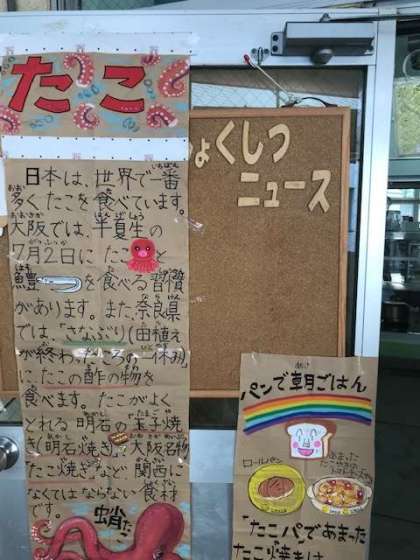 たこ
日本は、世界で一番
多くたこを食べています。
大阪では、半夏生の
7月2日にたこと
鱧を食べる習慣
があります。また、奈良県
では、「さなぶり」(田植え
が終わったころの一休み)
にたこの酢の物を
食べます。たこがよく
とれる明石の玉子焼
き(明石焼き)、大阪名物
「たこ焼き」など、関西に
なくてはならない食材
です。
蛸
ょくしつ
ニュース
パンで朝ごはん
ロールパン
あまった
「たこパ」であまった
たこ焼きは